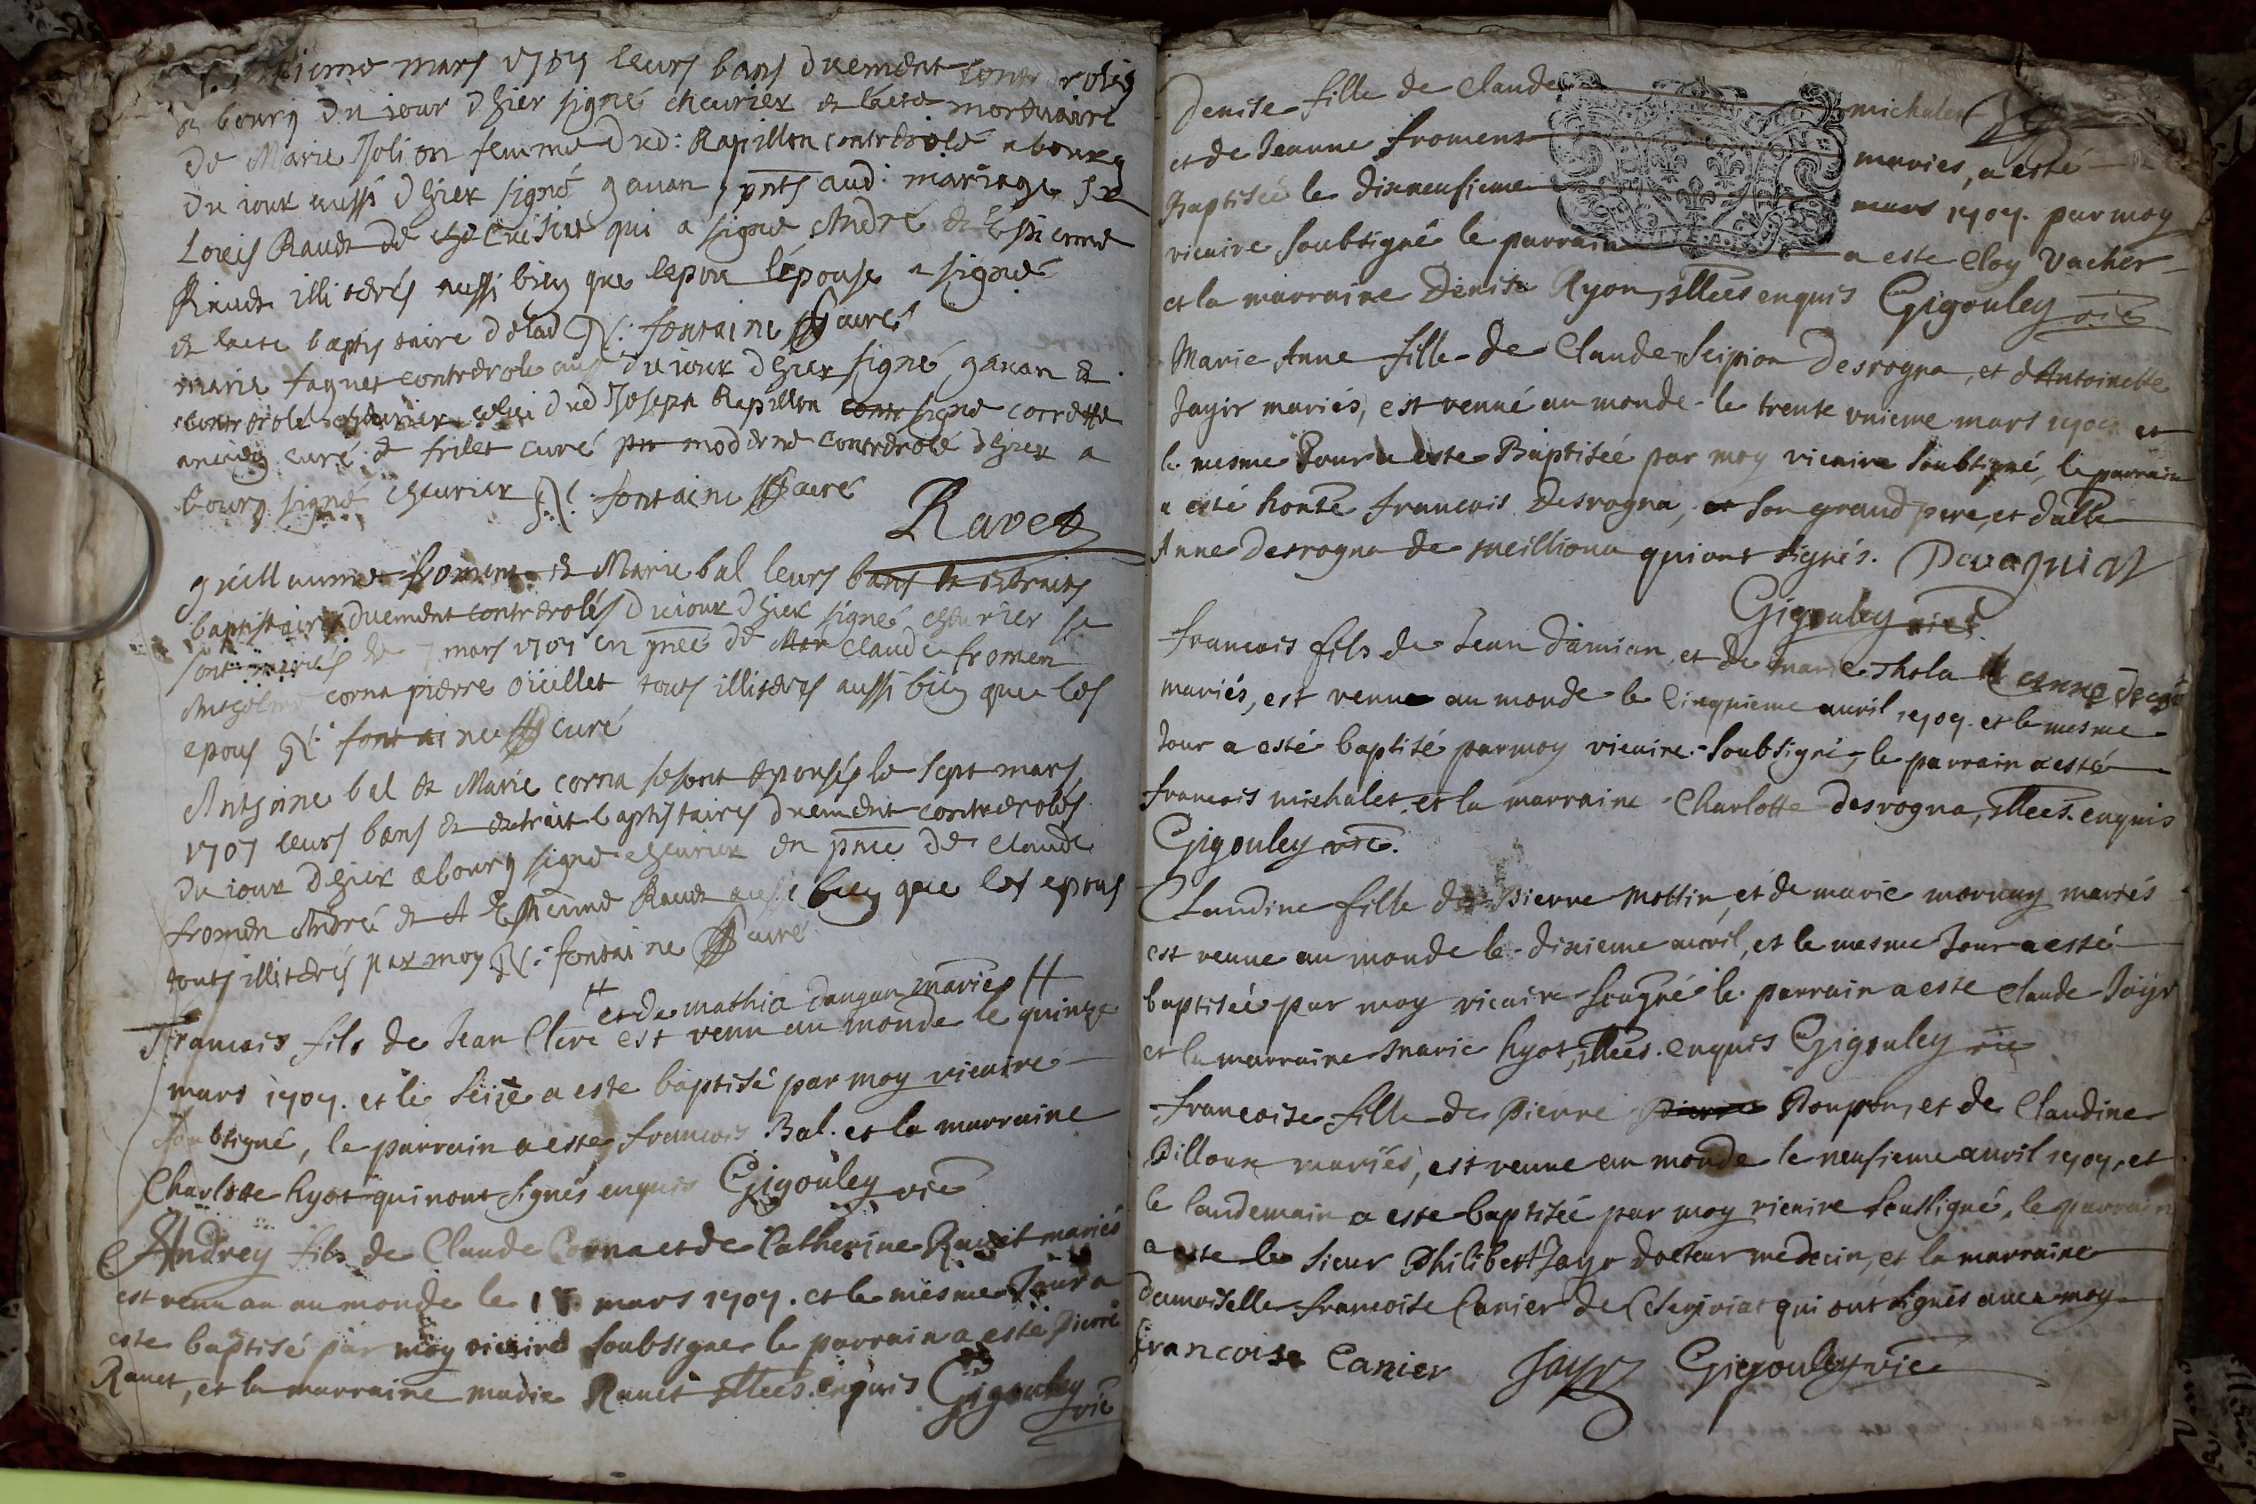 mars 1707 leurs bans duement
a bourg du iour dhier signé cheurier et lacte mortuaire
de Marie Jolion femme dud: Rapillon controlole a bourg
du iour aussi dhier signé gauan pnts aud: mariage sr
Louis Rauet de qui a signé André et Estienne
Rauet illiterés aussi bien que lepou lépouse a signé
et lacte baptistaire delad N: fontaine curé
marie faguet controrole aussi du iour dhier signé gauan et
controrolé cheurier celui dud Joseph Rapillon signé corrette
ancien curé et frilet curé moderne controrolé dhier a
bourg signé cheurier N: fontaine curé
Ravet
guillaume froment et Marie bal leurs bans et extraits
baptistaires duement controrolés du iour dhier signé cheurier se
sont mariés le 7 mars 1707 en pnce de Claude fromen
Anthoine corna pierre oüillet touts illiterés aussi bien que les
epous N: fontaine curé
Anthoine bal et Marie corna se sont epousés le sept mars
1707 leurs bans et extrait baptistaires duement controrolés
du iour dhier a bourg signé cheurier en pnce de claude
fromen André et Estienne Rauet aussi bien que les epous
touts illiterés par moy N: fontaine curé
et de mathia dangun mariés
Francois fils de Jean Clere est venu au monde le quinze
mars 1707. et le seize a este baptisé par moy vicaire
soubsigné, le parrain a este francois Bal. et la marraine
Charlotte hyot qui nont signés enquis Gigouley vic
Andrey fils de Claude Corna et de Catherine Rauet mariés
est venu au monde le mars 1707. et le mesme Jour a
este baptisé par moy vicaire soubsigner le parrain a esté Pierre
Rauet, et la marraine Rauet illees. enquis Gigouley
vic
Denise fille de Claude michalet
et de Jeanne froment mariés, a esté
Baptisée le dixneufieme mars 1707. par moy
vicaire soubsigné le parrain a este Cloy Vacher
et la marraine Denise Ryon, illees enquis Gigouley vic
Marie Anne fille de Claude Scipion Desrogna, et dAntoinette
Jayr mariés, est venue au monde le trente unieme mars 1707 et
le mesme Jour a este Baptisée par moy vicaire soubsigné, le parrain
a esté honte francois Desrogna, son grand pere, et dalle
Anne Desrogna de meilliona qui ont signés.
Gigouley vic.
francois fils de Jean Damian et de marie Thola
mariés, est venu au monde le cinquieme auril 1707. et le mesme
Jour a esté baptisé par moy vicaire soubsigné, le parrain a esté
francois michalet, et la marraine Charlotte desrogna, illees. enquis
Gigouley vic.
Claudine fille de Pierre Mottin, et de marie mornay mariés
est venue au monde le dixieme auril, et le mesme Jour a esté
baptisée par moy vicaire sousgné le parrain a este Claude Jayr
et la marraine marie hyot, illees. enquis Gigouley vic
francoise fille de Pierre Poupon, et de Claudine
Pilloux mariés, est venue au monde le neufieme auril 1707, et
le landemain a este baptisée par moy vicaire soussigné, le parrain
a este le sieur Philibert Jayr docteur medecin, et la marraine
Damoiselle francoise Canier de qui ont signés auec moy
francoise Canier Jayr Gigouley vic